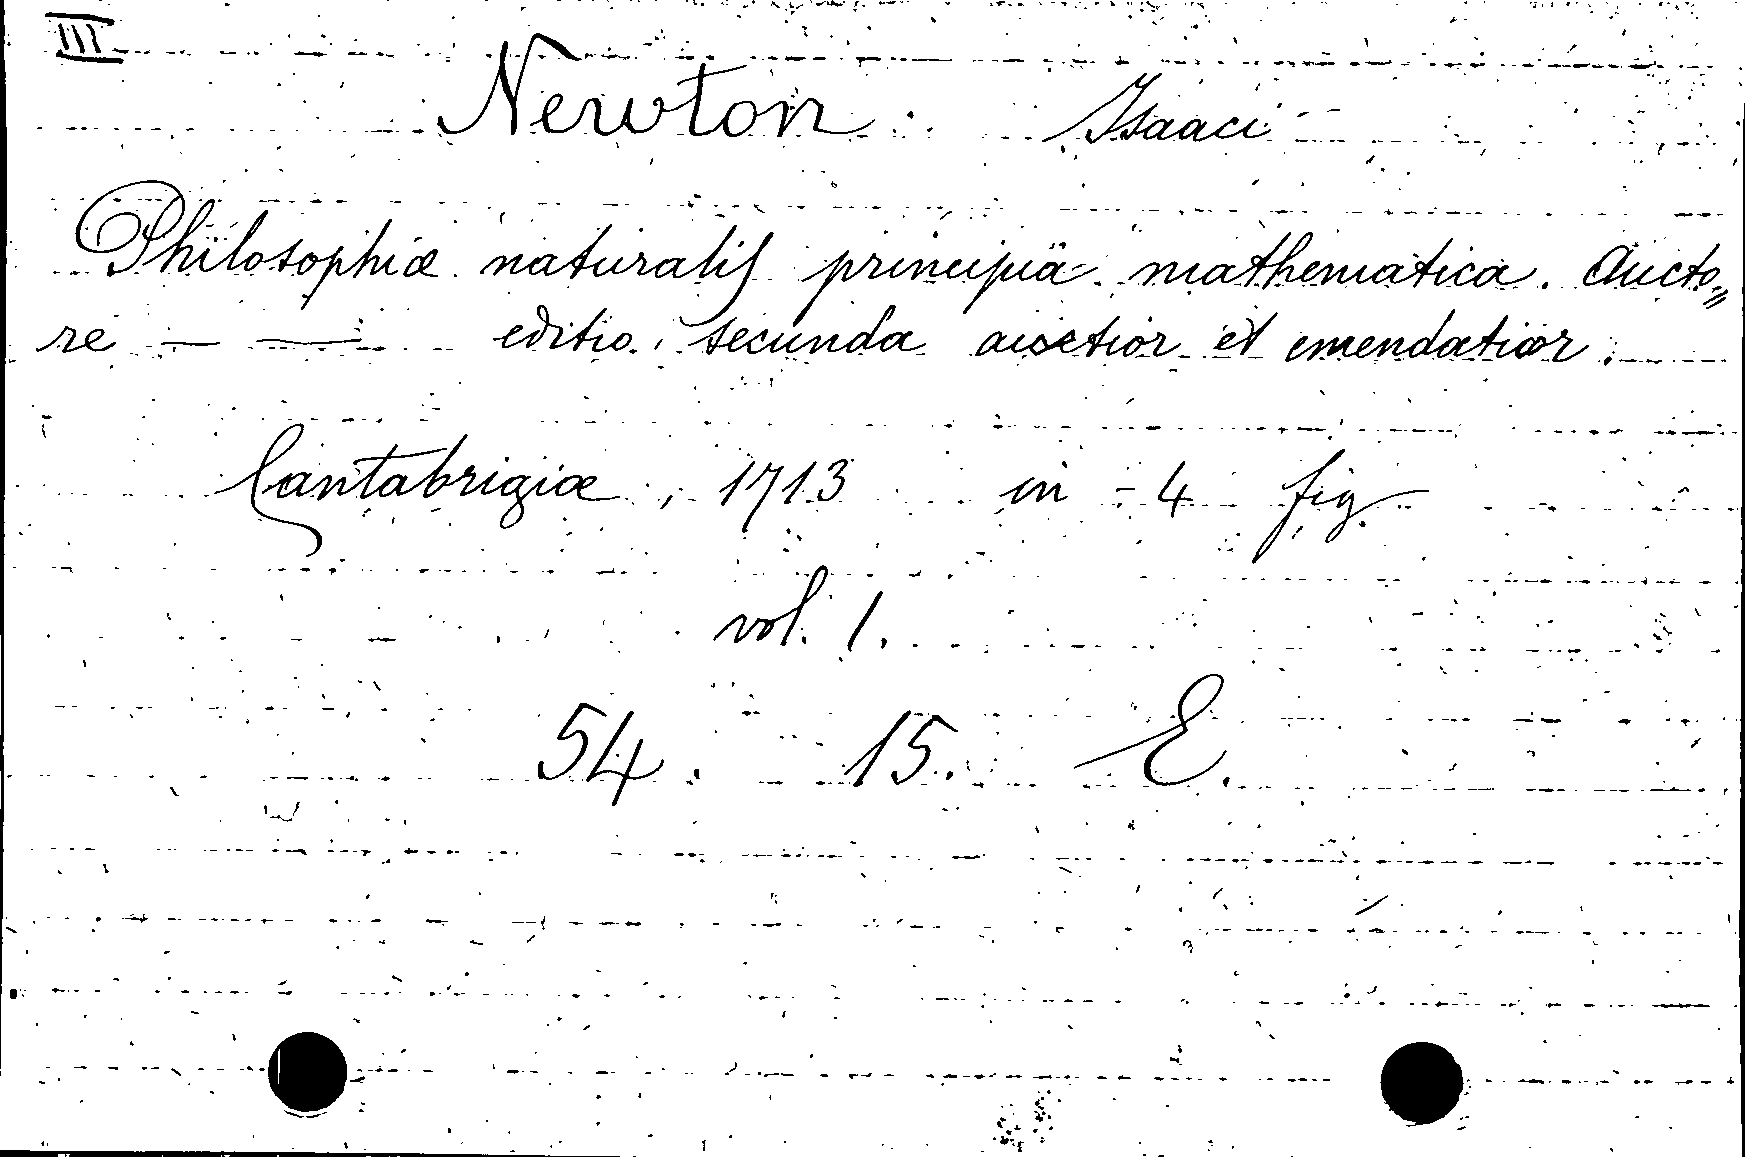 III
Newton Isaaci
Philosophiæ naturalis principia mathematica. Aucto„
re — — editio secunda auctior et emendatior.
Cantabrigiæ, 1713 in - 4 fig
vol. 1.
54. 15. E.